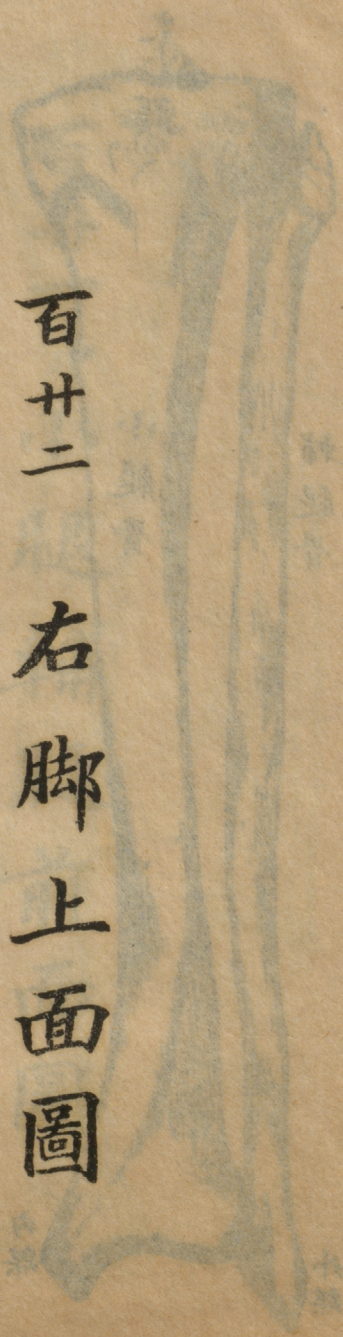 百廿二 右脚上面圖